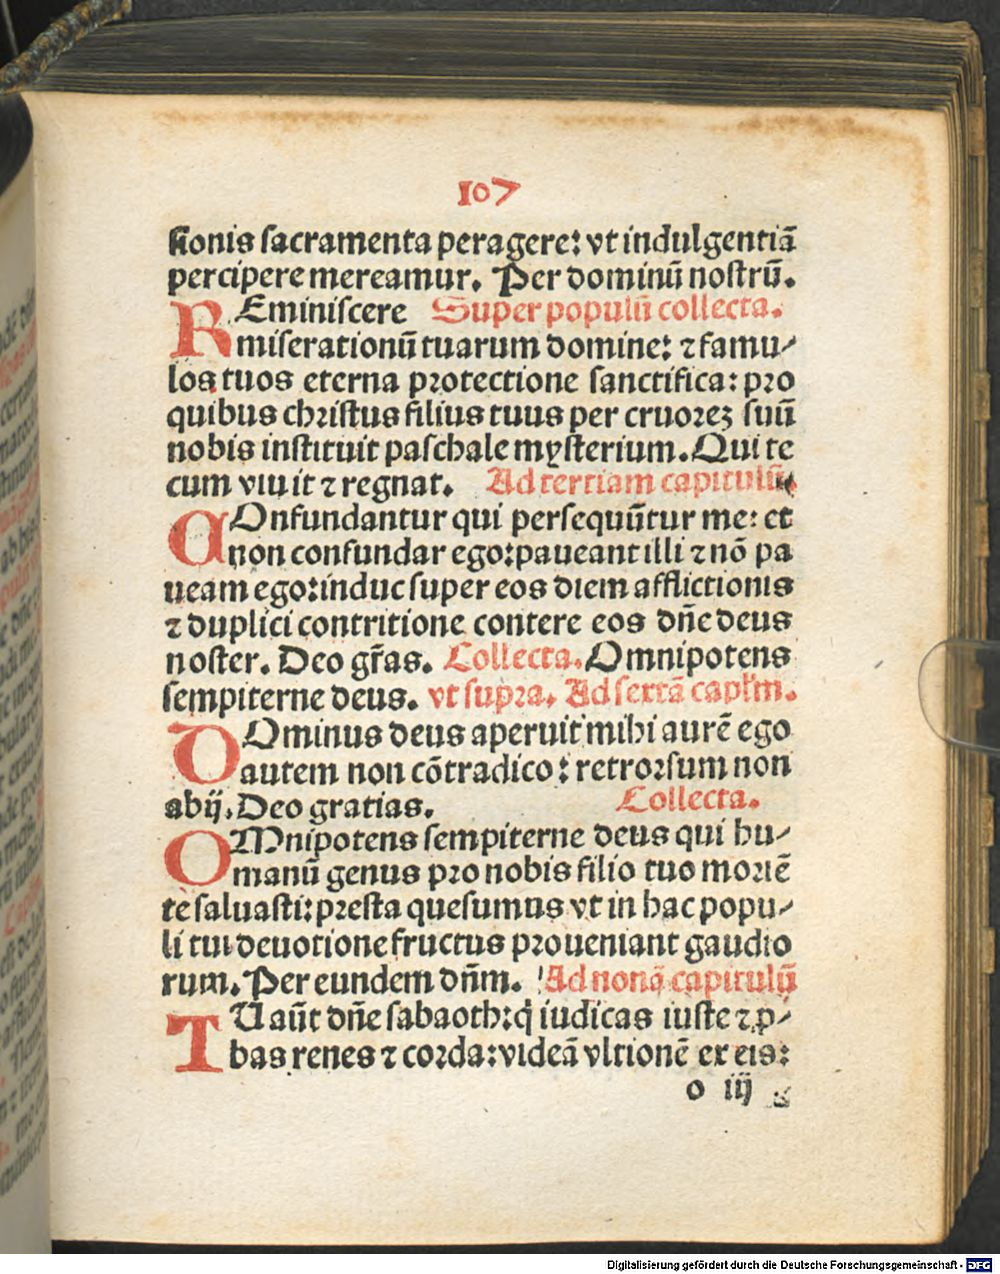 107
sionis sacramenta peragere: vt indulgentiā
percipere mereamur. Per dominū nostrū.
REminiscere Super populū collecta.
miserationū tuarum domine: ⁊ famu-
los tuos eterna protectione sanctifica: pro
quibus christus filius tuus per cruoreꝫ suū
nobis instituit paschale mysterium. Qui te
cum viuit ⁊ regnat. Ad tertiam capitulū.
COnfundantur qui persequūtur me: et
non confundar ego: paueant illi ⁊ nō pa
ueam ego: induc super eos diem afflictionis
⁊ duplici contritione contere eos dn̄e deus
noster. Deo gr̄as. Collecta. Omnipotens
sempiterne deus. vt supra. Ad sextā capl'm.
DOminus deus aperuit mihi aurē ego
autem non cōtradico: retrorsum non
abij. Deo gratias. Collecta.
OMnipotens sempiterne deus qui hu-
manū genus pro nobis filio tuo moriē
te saluasti: presta quesumus vt in hac popu-
li tui deuotione fructus proueniant gaudio
rum. Per eundem dn̄m. Ad nonā capitulū
TU aūt dn̄e sabaoth: q̇ iudicas iuste ⁊ ꝓ-
bas renes ⁊ corda: videā vltionē ex eis:
o iij
Digitalisierung gefördert durch die Deutsche Forschungsgemeinschaft - DFG